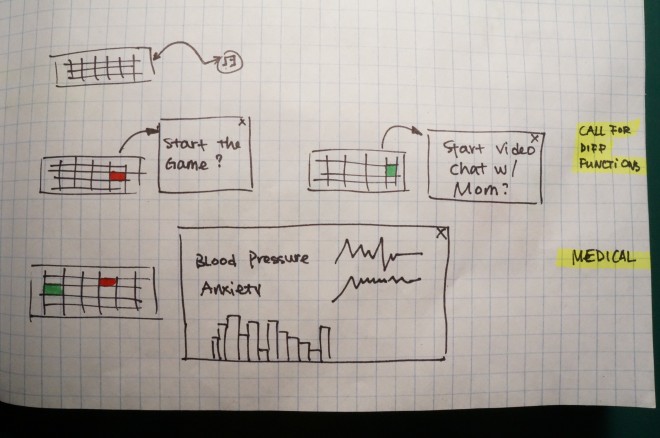 Start the
Game?
x
Start Video
Chat w/
Mom?
x
CALL FOR
DIFF
FUNCTIONS
x
Blood Pressure
Anxiety
MEDICAL